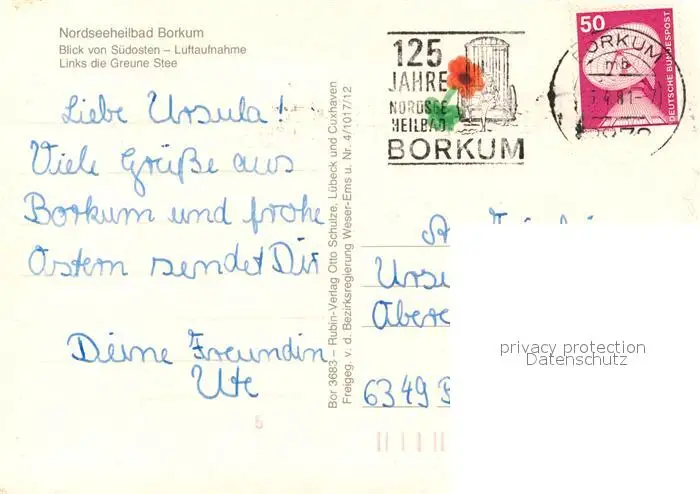 Nordseeheilbad Borkum
Blick von Südosten – Luftaufnahme
Links die Greune Stee
Liebe Ursula!
Viele Grüße aus
Borkum und frohe
Ostern sendet Dir
Deine Freundin
Ute
Bor 3683 – Rubin-Verlag Otto Schulze, Lübeck und Cuxhaven
Freigeg. v. d. Bezirksregierung Weser-Ems u. Nr. 4/1017/12
125
JAHRE
NORDSEE
HEILBAD
BORKUM
50
DEUTSCHE BUNDESPOST
BORKUM
mb
.4.81-
6349
privacy protection
Datenschutz
5